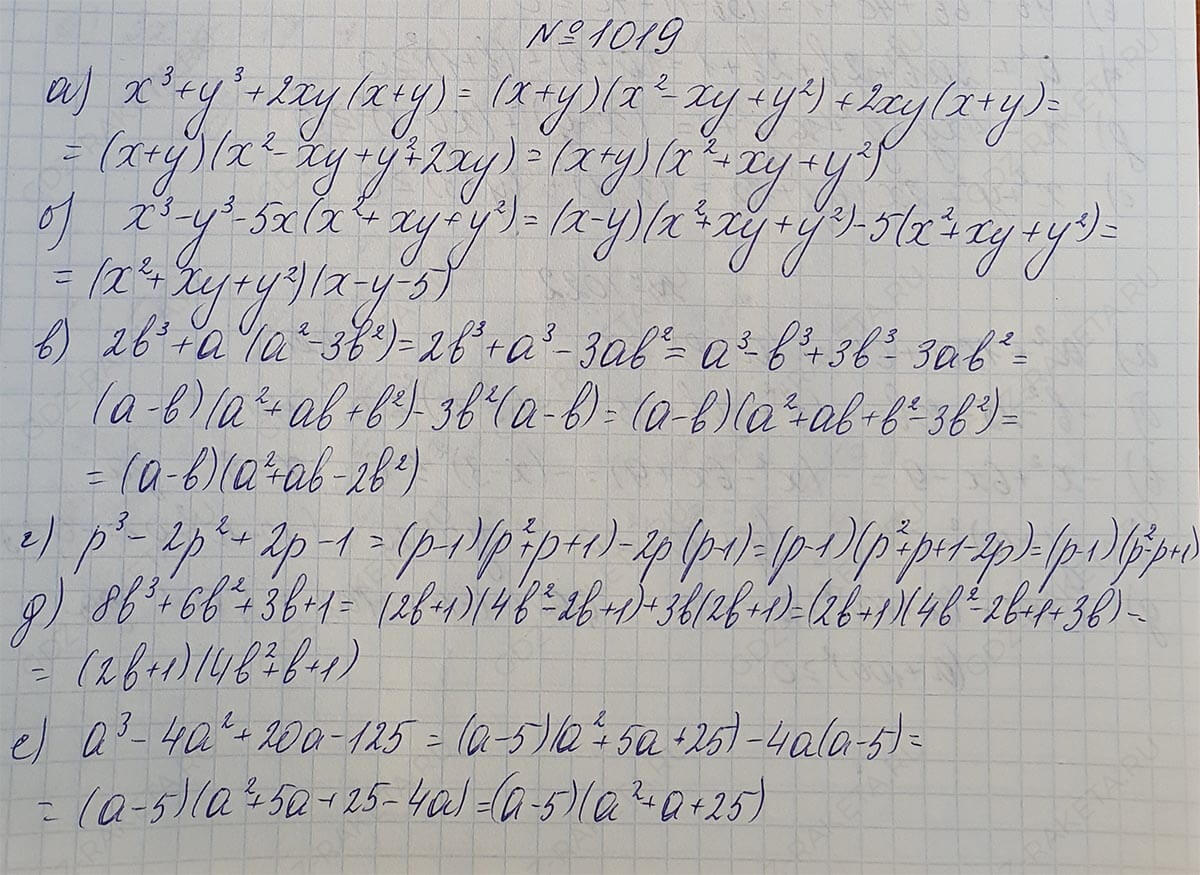 №1019
а) x³+y³+2xy(x+y)= (x+y)(x²-xy+y²)+2xy(x+y)=
= (x+y)(x²-xy+y²+2xy)=(x+y)(x²+xy+y²)
б) x³-y³-5x(x²+xy+y²)=(x-y)(x²+xy+y²)-5(x²+xy+y²)=
= (x²+xy+y²)(x-y-5)
в) 2b³+a(a²-3b²)=2b³+a³-3ab²= a³-b³+3b³-3ab²=
(a-b)(a²+ab+b²)-3b²(a-b)=(a-b)(a²+ab+b²-3b²)=
= (a-b)(a²+ab-2b²)
г) p³-2p²+2p-1 = (p-1)(p²+p+1)-2p(p-1)=(p-1)(p²+p+1-2p)=(p-1)(p²-p+1)
д) 8b³+6b²+3b+1= (2b+1)(4b²-2b+1)+3b(2b+1)=(2b+1)(4b²-2b+1+3b)-
= (2b+1)(4b²+b+1)
е) a³-4a²+20a-125 = (a-5)(a²+5a+25)-4a(a-5)=
= (a-5)(a²+5a+25-4a)=(a-5)(a²+a+25)